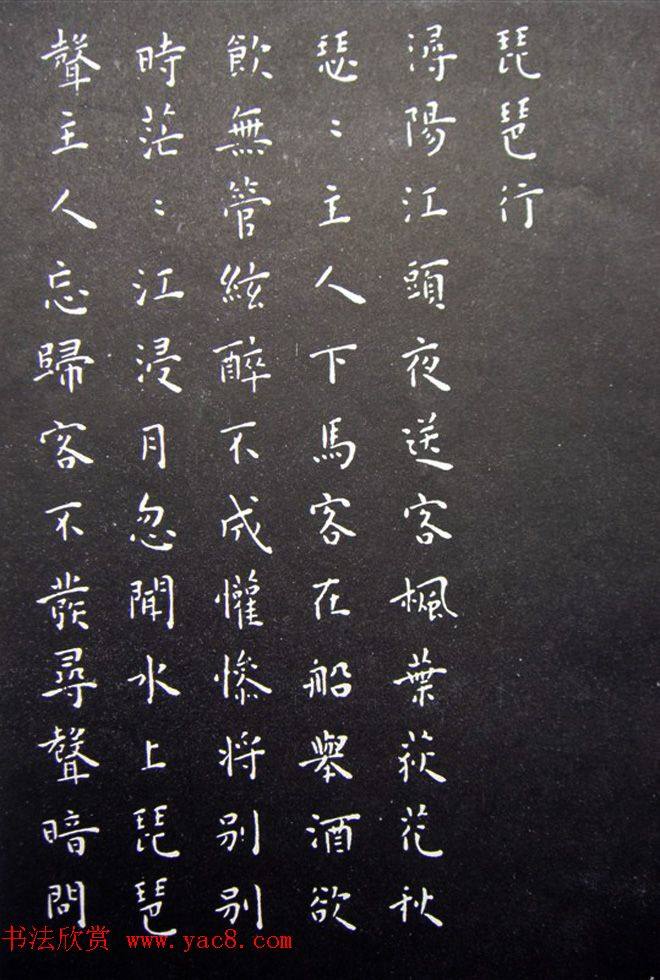 琵琶行
潯陽江頭夜送客楓葉荻花秋
瑟〻主人下馬客在船舉酒欲
飲無管絃醉不成懽慘將別別
時茫〻江浸月忽聞水上琵琶
聲主人忘歸客不發尋聲暗問
书法欣赏 www.yac8.com